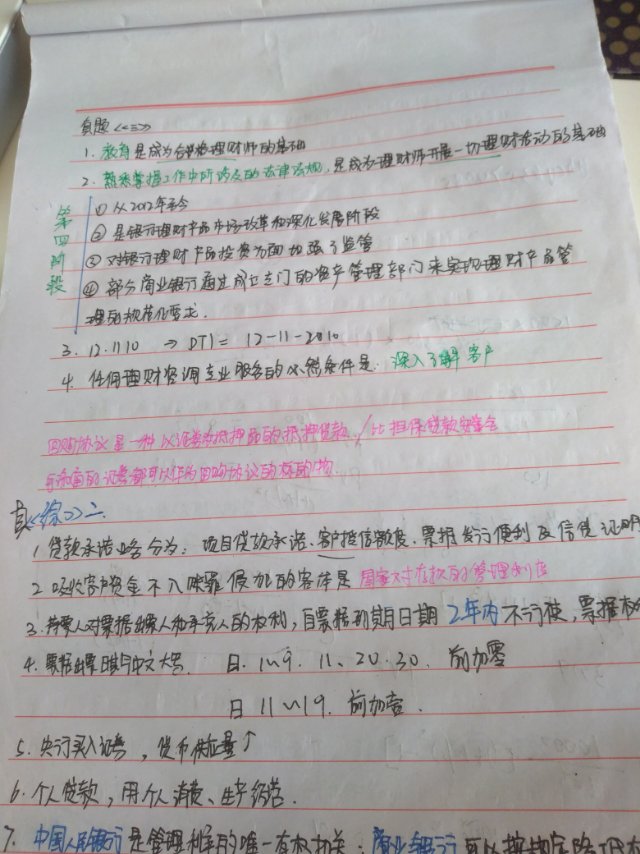 真题<<三>>
1. 教育是成为合格理财师的基础
2. 熟悉掌握工作中所涉及的法律法规,是成为理财师开展一切理财活动的基础
第四阶段
① 从2012年至今
② 是银行理财产品市场改革和深化发展阶段
③ 对银行理财产品的投资方面加强了监管
④ 部分商业银行通过成立专门的资产管理部门来实现理财产品管
理的规范化要求.
3. 12.1110 → DT1= 12-11-2010
4. 任何理财咨询专业服务的必然条件是. 深入了解客户
回购协议是一种以证券为抵押品的抵押贷款, 比担保贷款安全
所有的证券都可以作为回购协议的标的物.
真<<综>>二
1. 贷款承诺业务分为:项目贷款承诺、客户授信额度、票据发行便利及信贷证明
2. 吸收客户资金不入账罪侵犯的客体是 国家对存款的管理制度
3. 持票人对票据出票人和承兑人的权利,自票据到期日期 2年内 不行使,票据权
4. 票据出票日期与中文大写. 日. 1~9. 11、20.30. 前加零
日 11~19. 前加壹.
5. 央行买入证券,货币供应量↑
6. 个人贷款,用个人消费、生产经营.
7. 中国人民银行是管理利率的唯一有权机关:商业银行可以